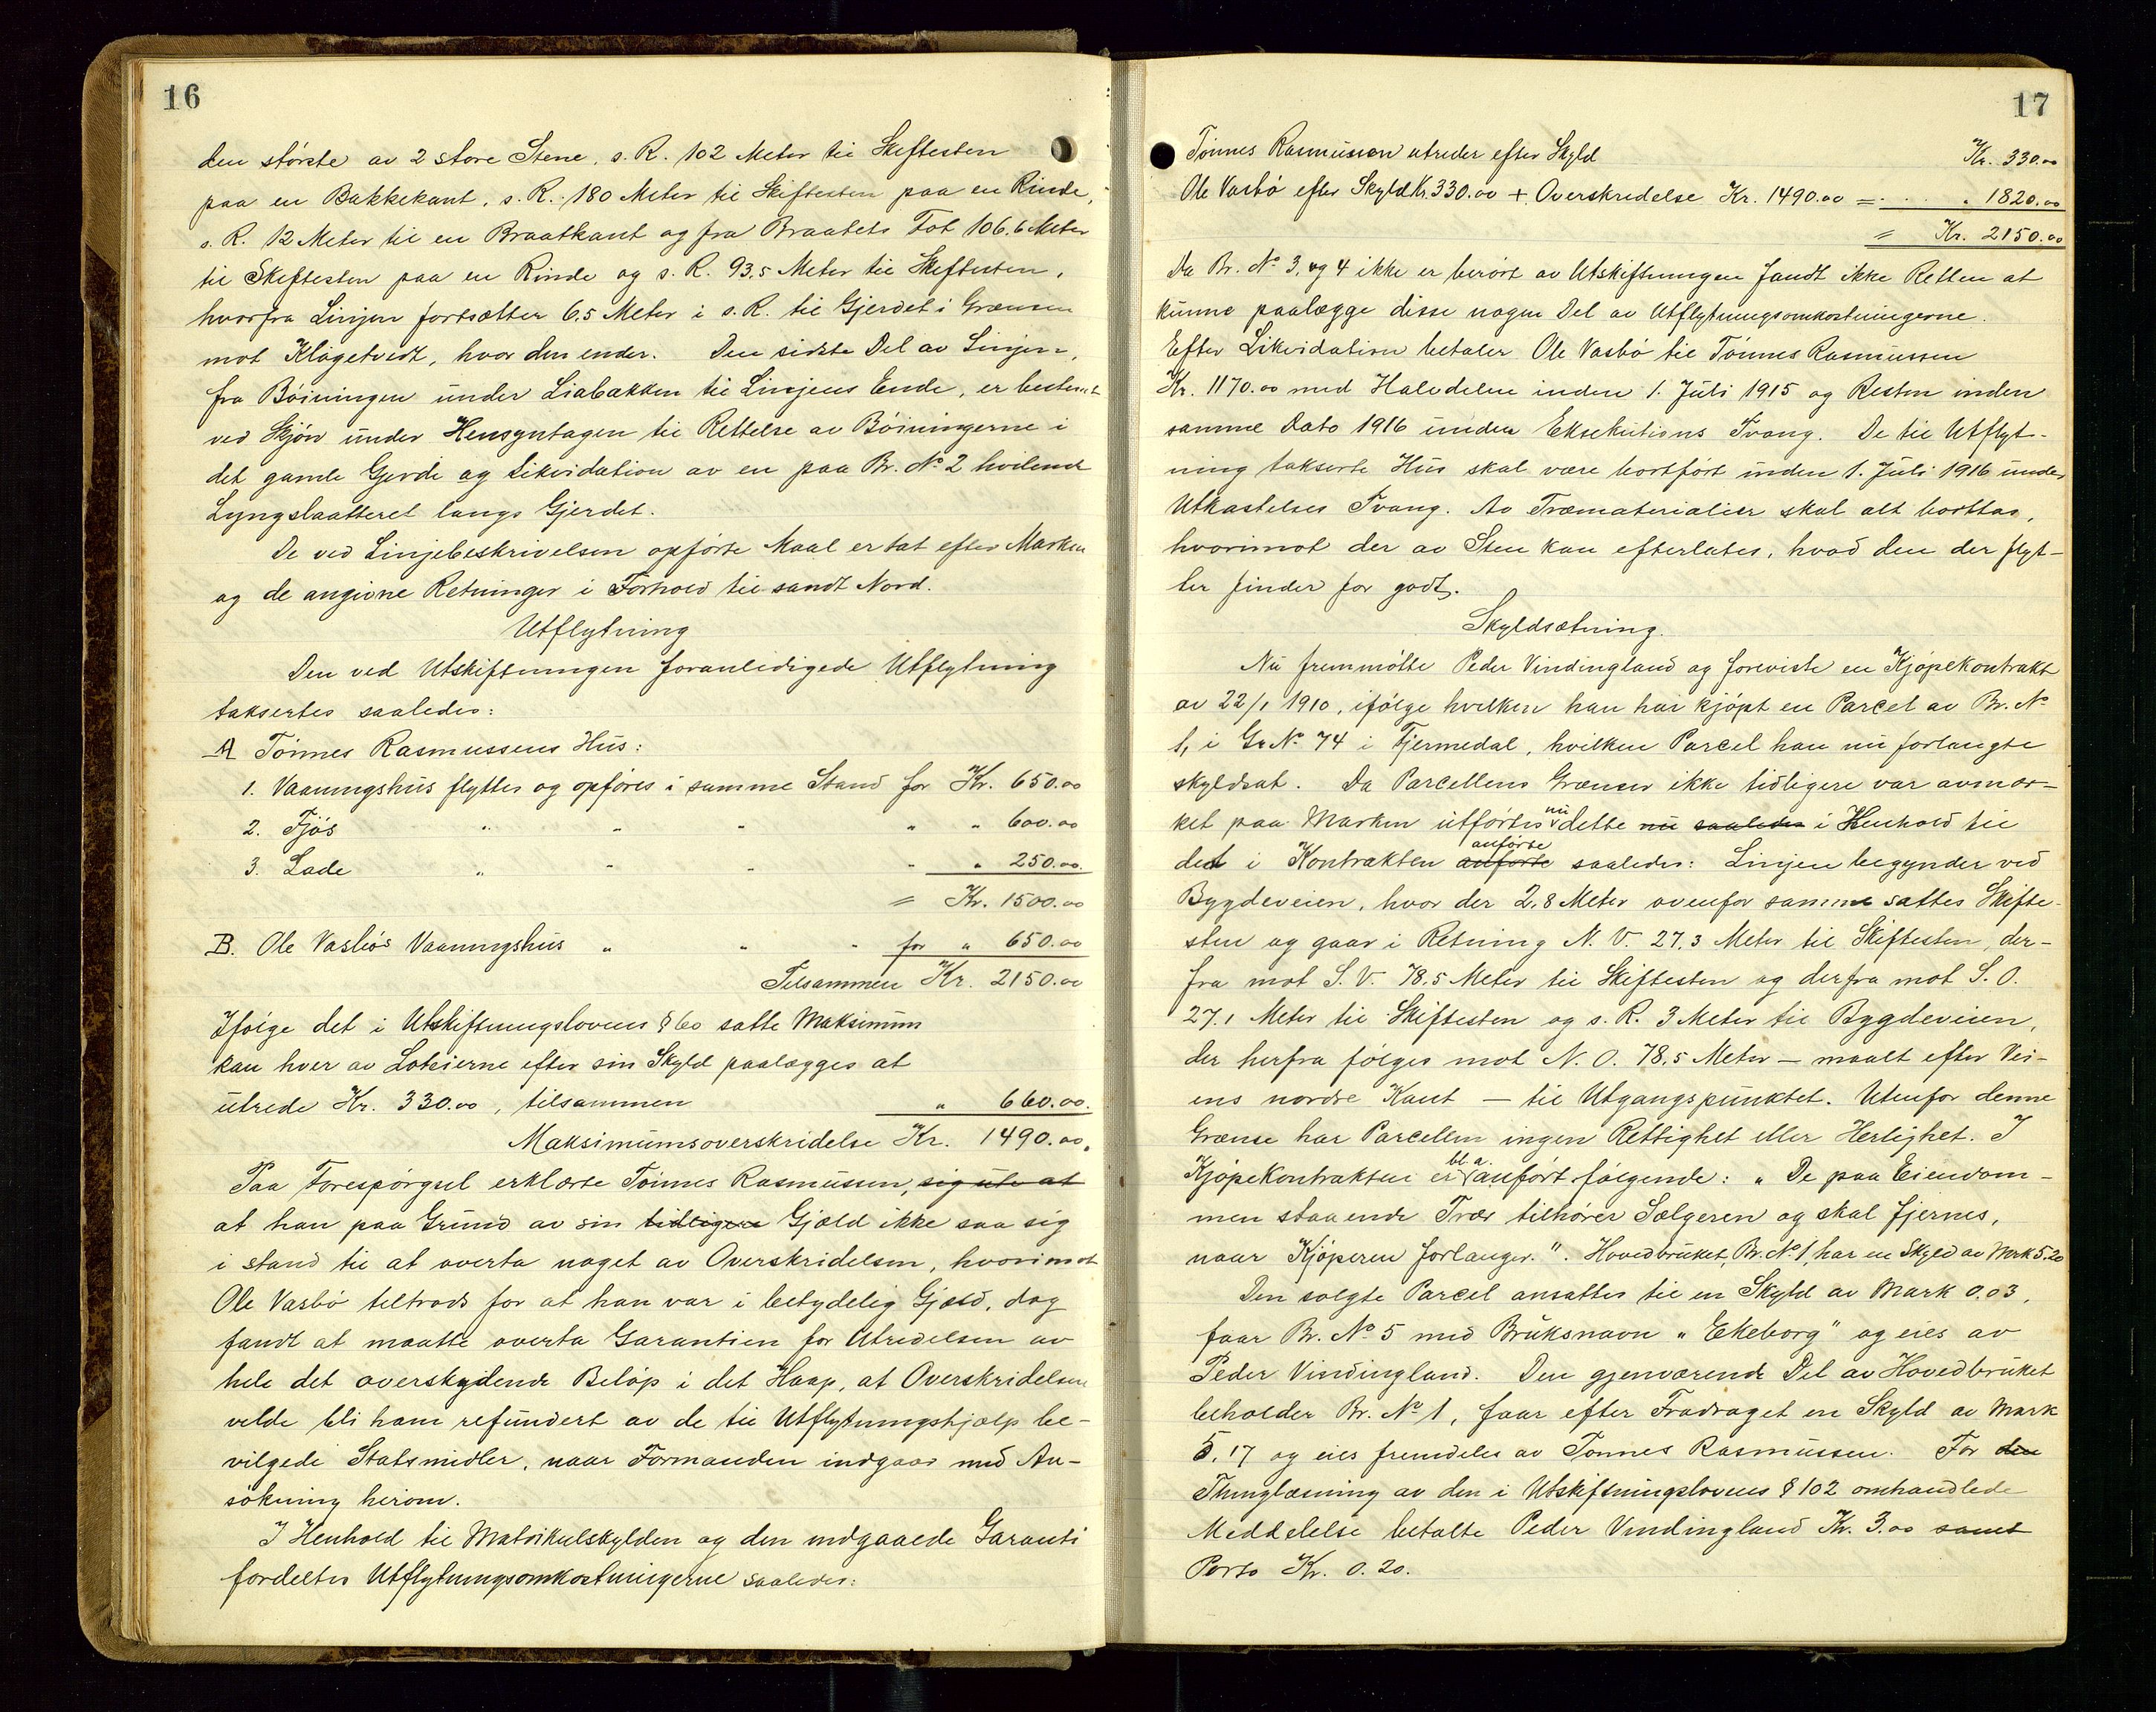 16
den største av 2 store Stene, s. R. 102 Meter til Skiftesten
paa en Bakkekant, s. R. 180 Meter til Skiftesten paa en Rinde,
s. R. 12 Meter til en Braatkant og fra Braatets Fot 106.6 Meter
til Skiftesten paa en Rinde og s. R. 93,5 Meter til Skiftesten,
hvorfra Linjen fortsætter 6,5 Meter i s. R. til Gjerdet i Grænsen
mot Klögetvedt, hvor den ender. Den sidste Del av Linjen,
fra Böiningen under Liabakken til Linjens Ende, er bestemt
ved Skjön under Hensyntagen til Rettelse av Böiningerne i
det gamle Gjerde og Likvidation av en paa Br. No 2 hvilende
Lyngslaatteret langs Gjerdet.
De ved Linjebeskrivelsen opførte Maal er tat efter Marken
og de angivne Retninger i Forhold til sandt Nord.
Utflytning
Den ved Utskiftningen foranledigede Utflytning
taksertes saaledes:
A Tönnes Rasmussens Hus:
1. Vaaningshus flyttes og opføres i samme Stand for Kr. 650.00
2. Fjös " " " " " 600.00
3. Lade " " " " " 250.00.
= Kr. 1500.00
B. Ole Vasbös Vaaningshus " " " for " 650.00
Tilsammen Kr. 2150.00
Ifölge det i Utskiftningslovens § 60 satte Maksimum
kan hver av Loteierne efter sin Skyld paalægges at
utrede Kr. 330.00, tilsammen " 660.00.
Maksimumsoverskridelse Kr. 1490.00.
Paa Forespörgsel erklærte Tönnes Rasmussen, sig ute at
at han paa Grund av sin tidligere Gjæld ikke saa sig
i stand til at overta noget av Overskridelsen, hvorimot
Ole Vasbö tiltrods for at han var i betydelig Gjæld, dog
fandt at maatte overta Garantien for Utredelsen av
hele det overskydende Belöp i det Haap, at Overskridelsen
vilde bli ham refundert av de til Utflytningshjælp be-
vilgede Statsmidler, naar Formanden indgaar med An-
sökning herom.
I Henhold til Matrikulskylden og den indgaaede Garanti
fordeltes Utflytningsomkostningerne saaledes:
17
Tönnes Rasmussen utreder efter Skyld Kr. 330.00
Ole Vasbö efter Skyld Kr. 330.00 + Overskridelse Kr. 1490.00 = " 1820.00
= Kr. 2150.00
Da Br. No 3, og 4 ikke er berört av Utskiftningen fandt ikke Retten at
kunne paalægge disse nogen Del av Utflytningsomkostningerne.
Efter Likvidation betaler Ole Vasbö til Tönnes Rasmussen
Kr. 1170.00 med Halvdelen inden 1. Juli 1915 og Resten inden
samme Dato 1916 under Eksekutions Tvang. De til Utflyt-
ning takserte Hus skal være bortfört inden 1. Juli 1916 under
Utkastelses Tvang. Av Træmaterialier skal alt borttas,
hvorimot der av Sten kan efterlates, hvad den der flyt-
ter finder for godt.
Skyldsætning.
Nu fremmötte Peder Vindingland og foreviste en Kjöpekontrakt
av 22/1 1910, ifölge hvilken han har kjöpt en Parcel av Br. No
1, i Gr No 74 i Fjermedal, hvilken Parcel han nu forlangte
skyldsat. Da Parcellens Grænser ikke tidligere var avmær-
ket paa Marken utførtes nu dette nu saaledes i Henhold til
det i Kontrakten anførte anførte saaledes: Linjen begynder ved
Bygdeveien, hvor der 2,8 Meter ovenfor samme sattes Skifte-
sten og gaar i Retning N. V. 27.3 Meter til Skiftesten, der-
fra mot S. V. 78.5 Meter til Skiftesten og derfra mot S. O.
27.1 Meter til Skiftesten og s. R. 3 Meter til Bygdeveien,
der herfra fölges mot N. O. 78,5 Meter - maalt efter Vei-
ens nordre Kant - til Utgangspunktet. Utenfor denne
Grænse har Parcellen ingen Rettighet eller Herlighet. I
Kjöpekontrakten er bl. a. anfört fölgende: "De paa Eiendom-
men staaende Trær tilhører Sælgeren og skal fjernes,
naar Kjöperen forlanger". Hovedbruket, Br. No 1, har en Skyld av Mark 5.20
Den solgte Parcel ansattes til en Skyld av Mark 0.03,
faar Br. No 5 med Bruksnavn "Ekeborg" og eies av
Peder Vindingland. Den gjenværende Del av Hovedbruket
beholder Br. No 1, faar efter Fradraget en Skyld av Mark
5.17 og eies fremdeles av Tønnes Rasmussen. For den
Thinglæsning av den i Utskiftningslovens § 102 omhandlede
Meddelelse betalte Peder Vindingland Kr. 3.00 samt
Porto Kr. 0.20.